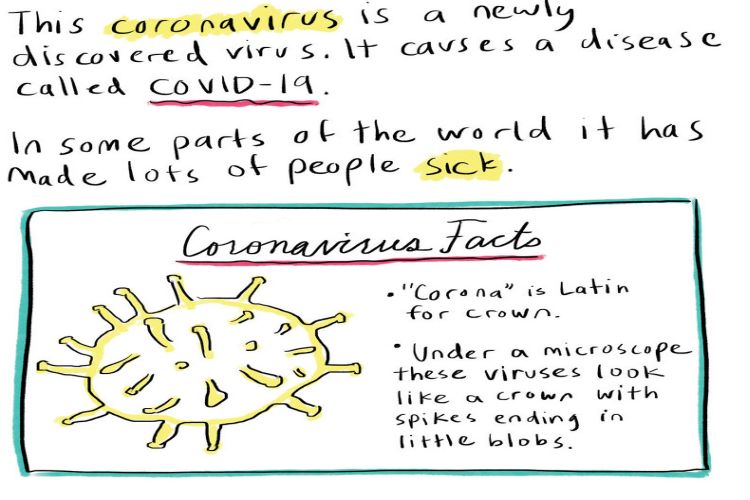 This coronavirus is a newly
discovered virus. It causes a disease
called COVID-19.
In some parts of the world it has
made lots of people sick.
Coronavirus Facts
• "Corona" is Latin
for crown.
• Under a microscope
these viruses look
like a crown with
spikes ending in
little blobs.